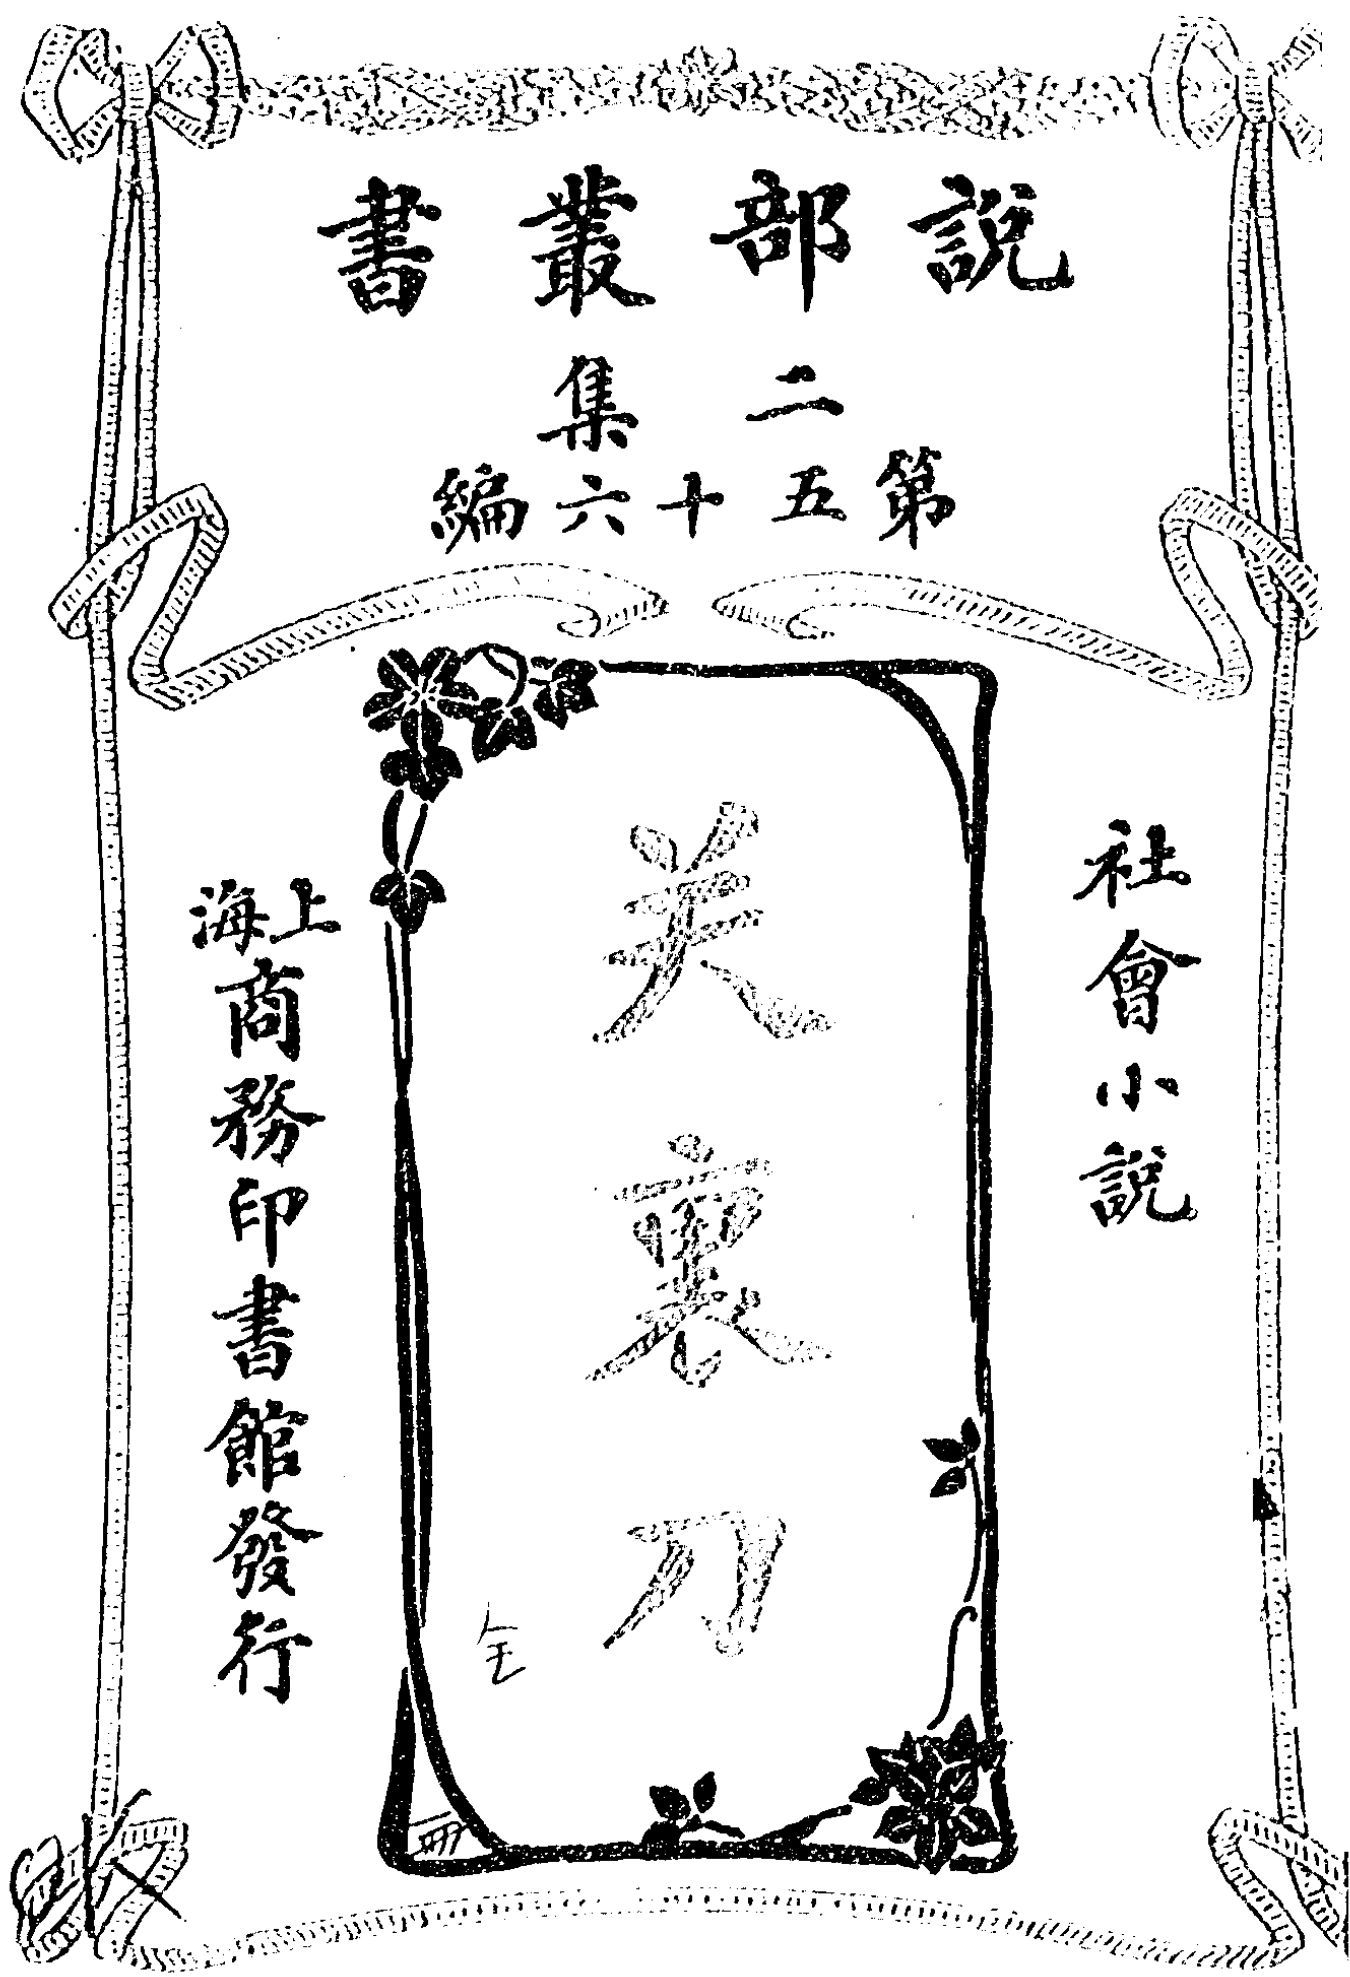 說部叢書
二集
第五十六編
社會小說
关裏刀
全
上海
商務印書館發行